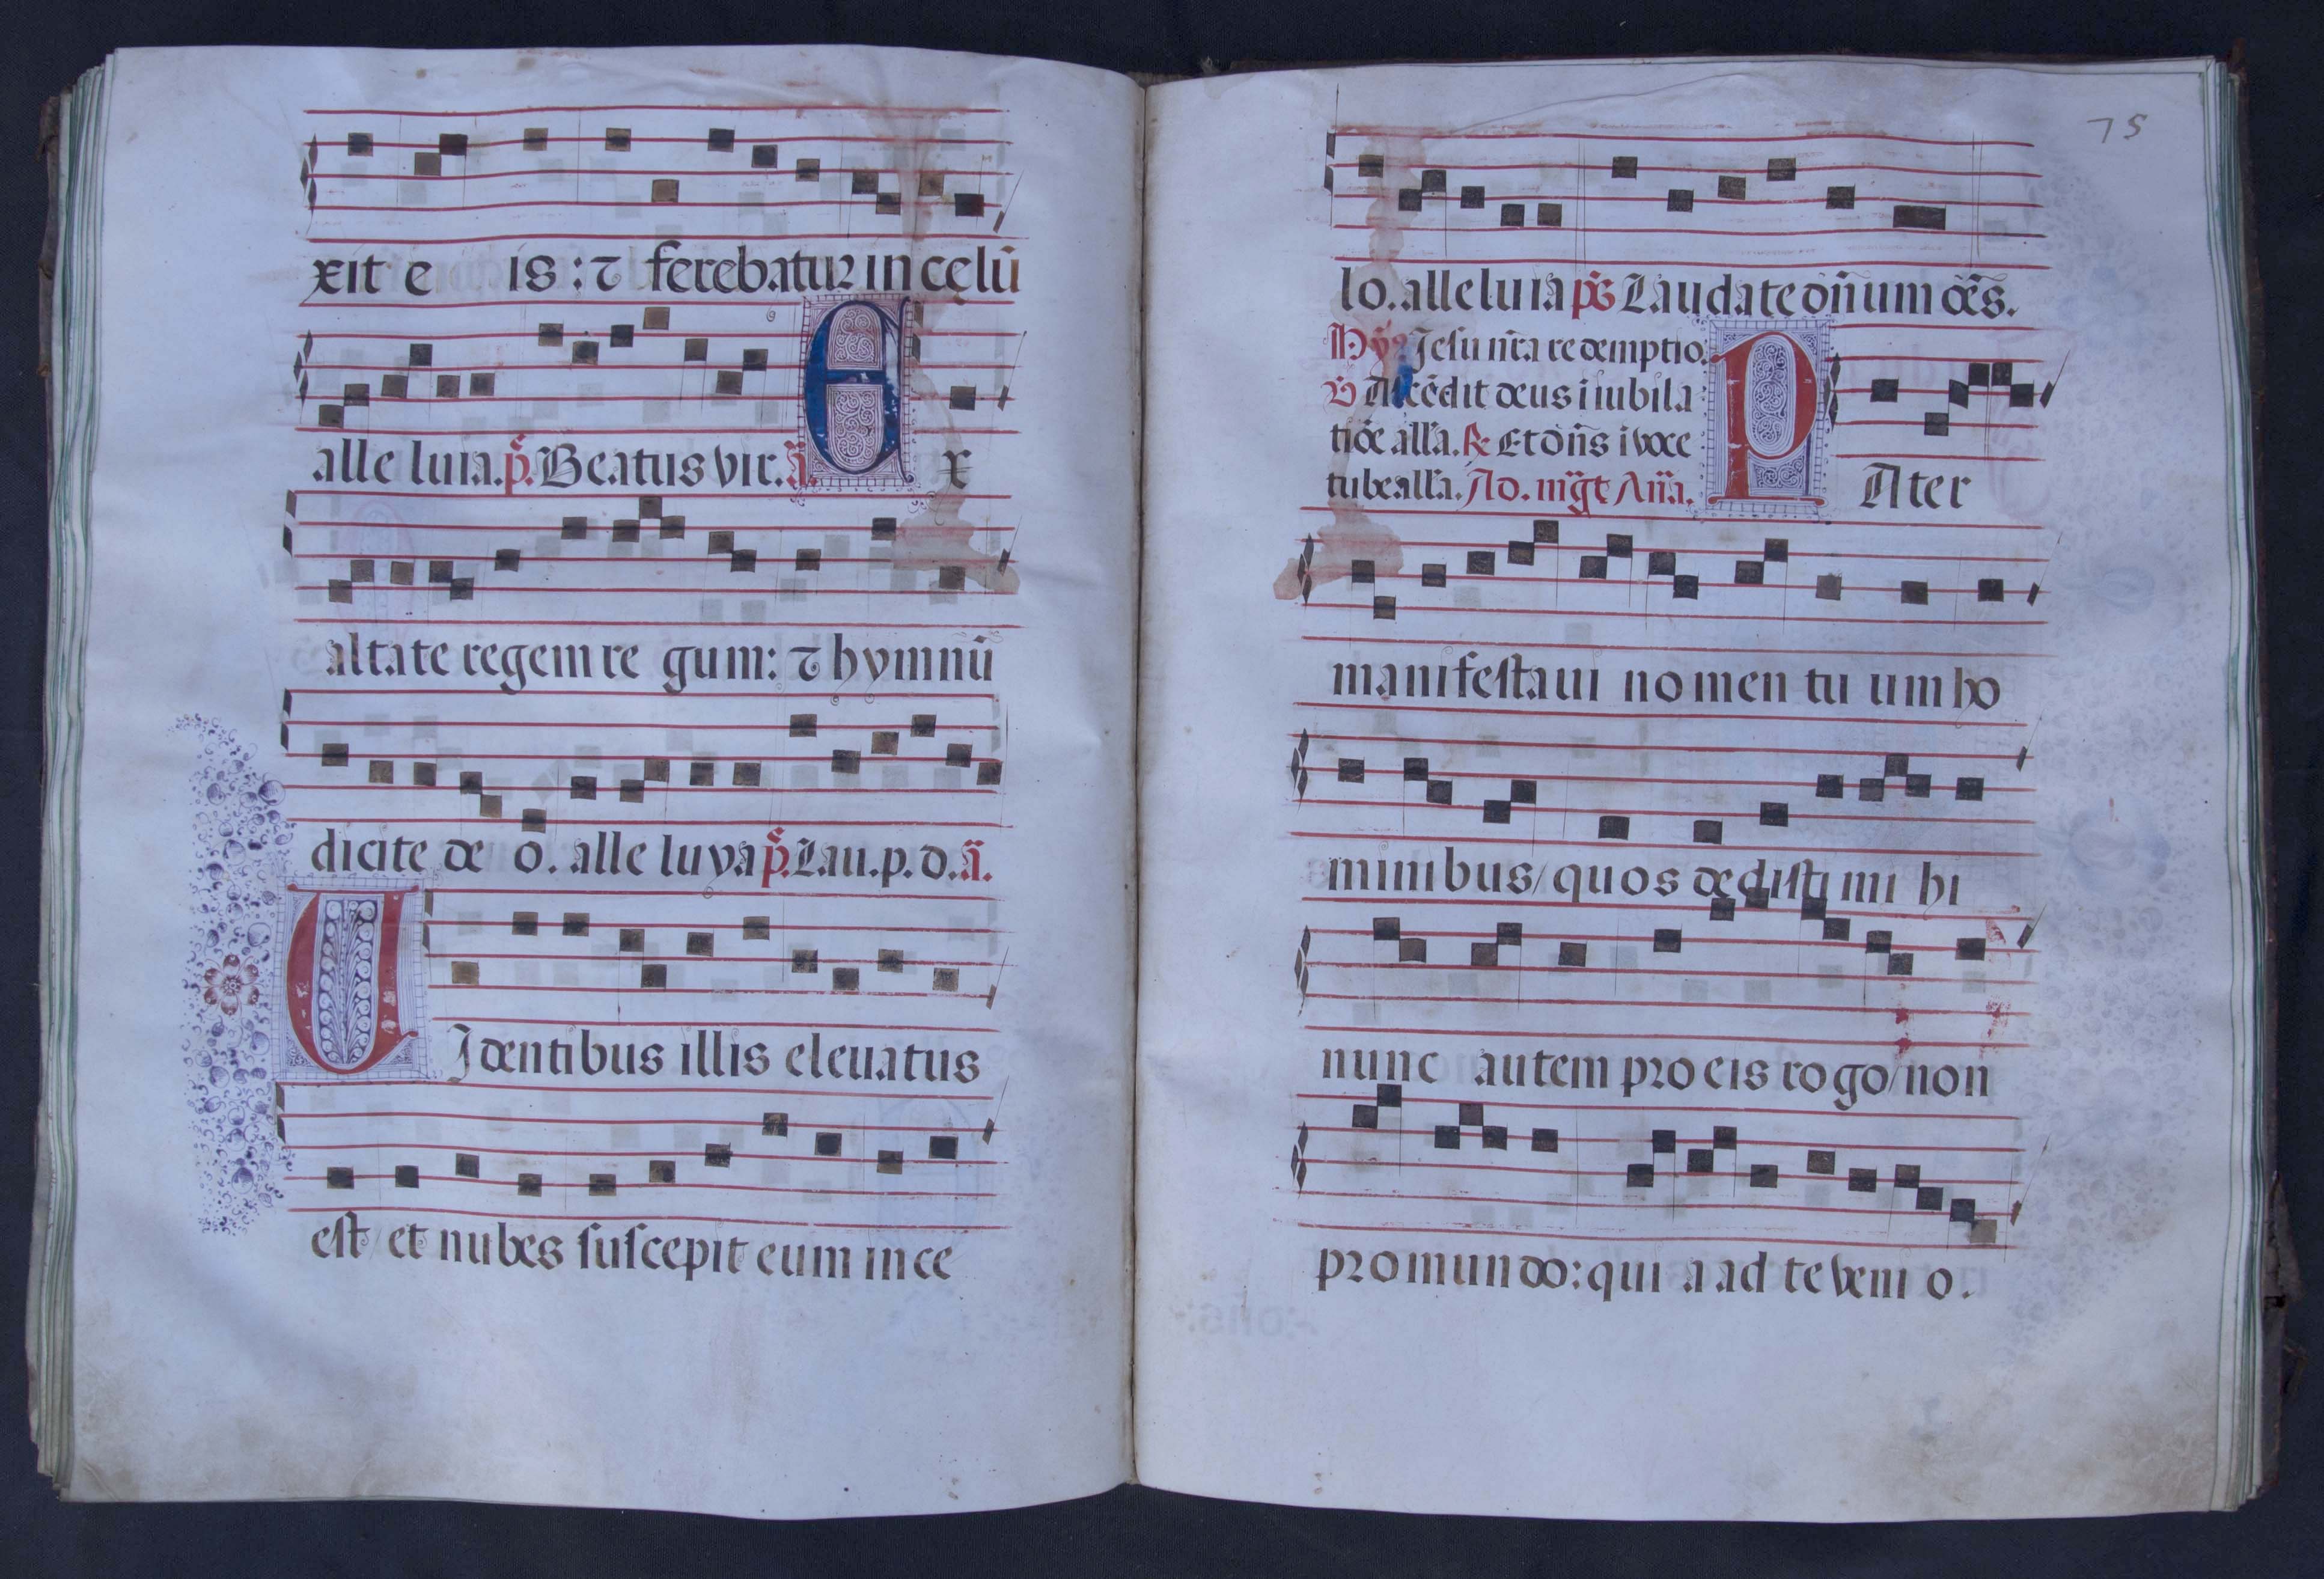 xit e is: ⁊ ferebatur in cęlū
alle luia. p̄. Beatus vir. ā. E x
altate regem re gum: ⁊ hymnū
dicite de o. alle luya p̄. Lau. p. d. ā.
U Identibus illis eleuatus
est / et nubes suscepit eum in ce
75
lo. alle luia ps̄ Laudate dn̄um oēs.
Hy9 Jesu nr̄a redemptio.
V̄ Ascēdit deus i iubila
tiōe all'a. ℟ Et dn̄s i voce
tube all'a. Ad. mḡt An̄a. P Ater
manifestaui nomen tu um ho
minibus / quos dedisti mi hi
nunc autem pro eis rogo / non
pro mundo: qui a ad te veni o.